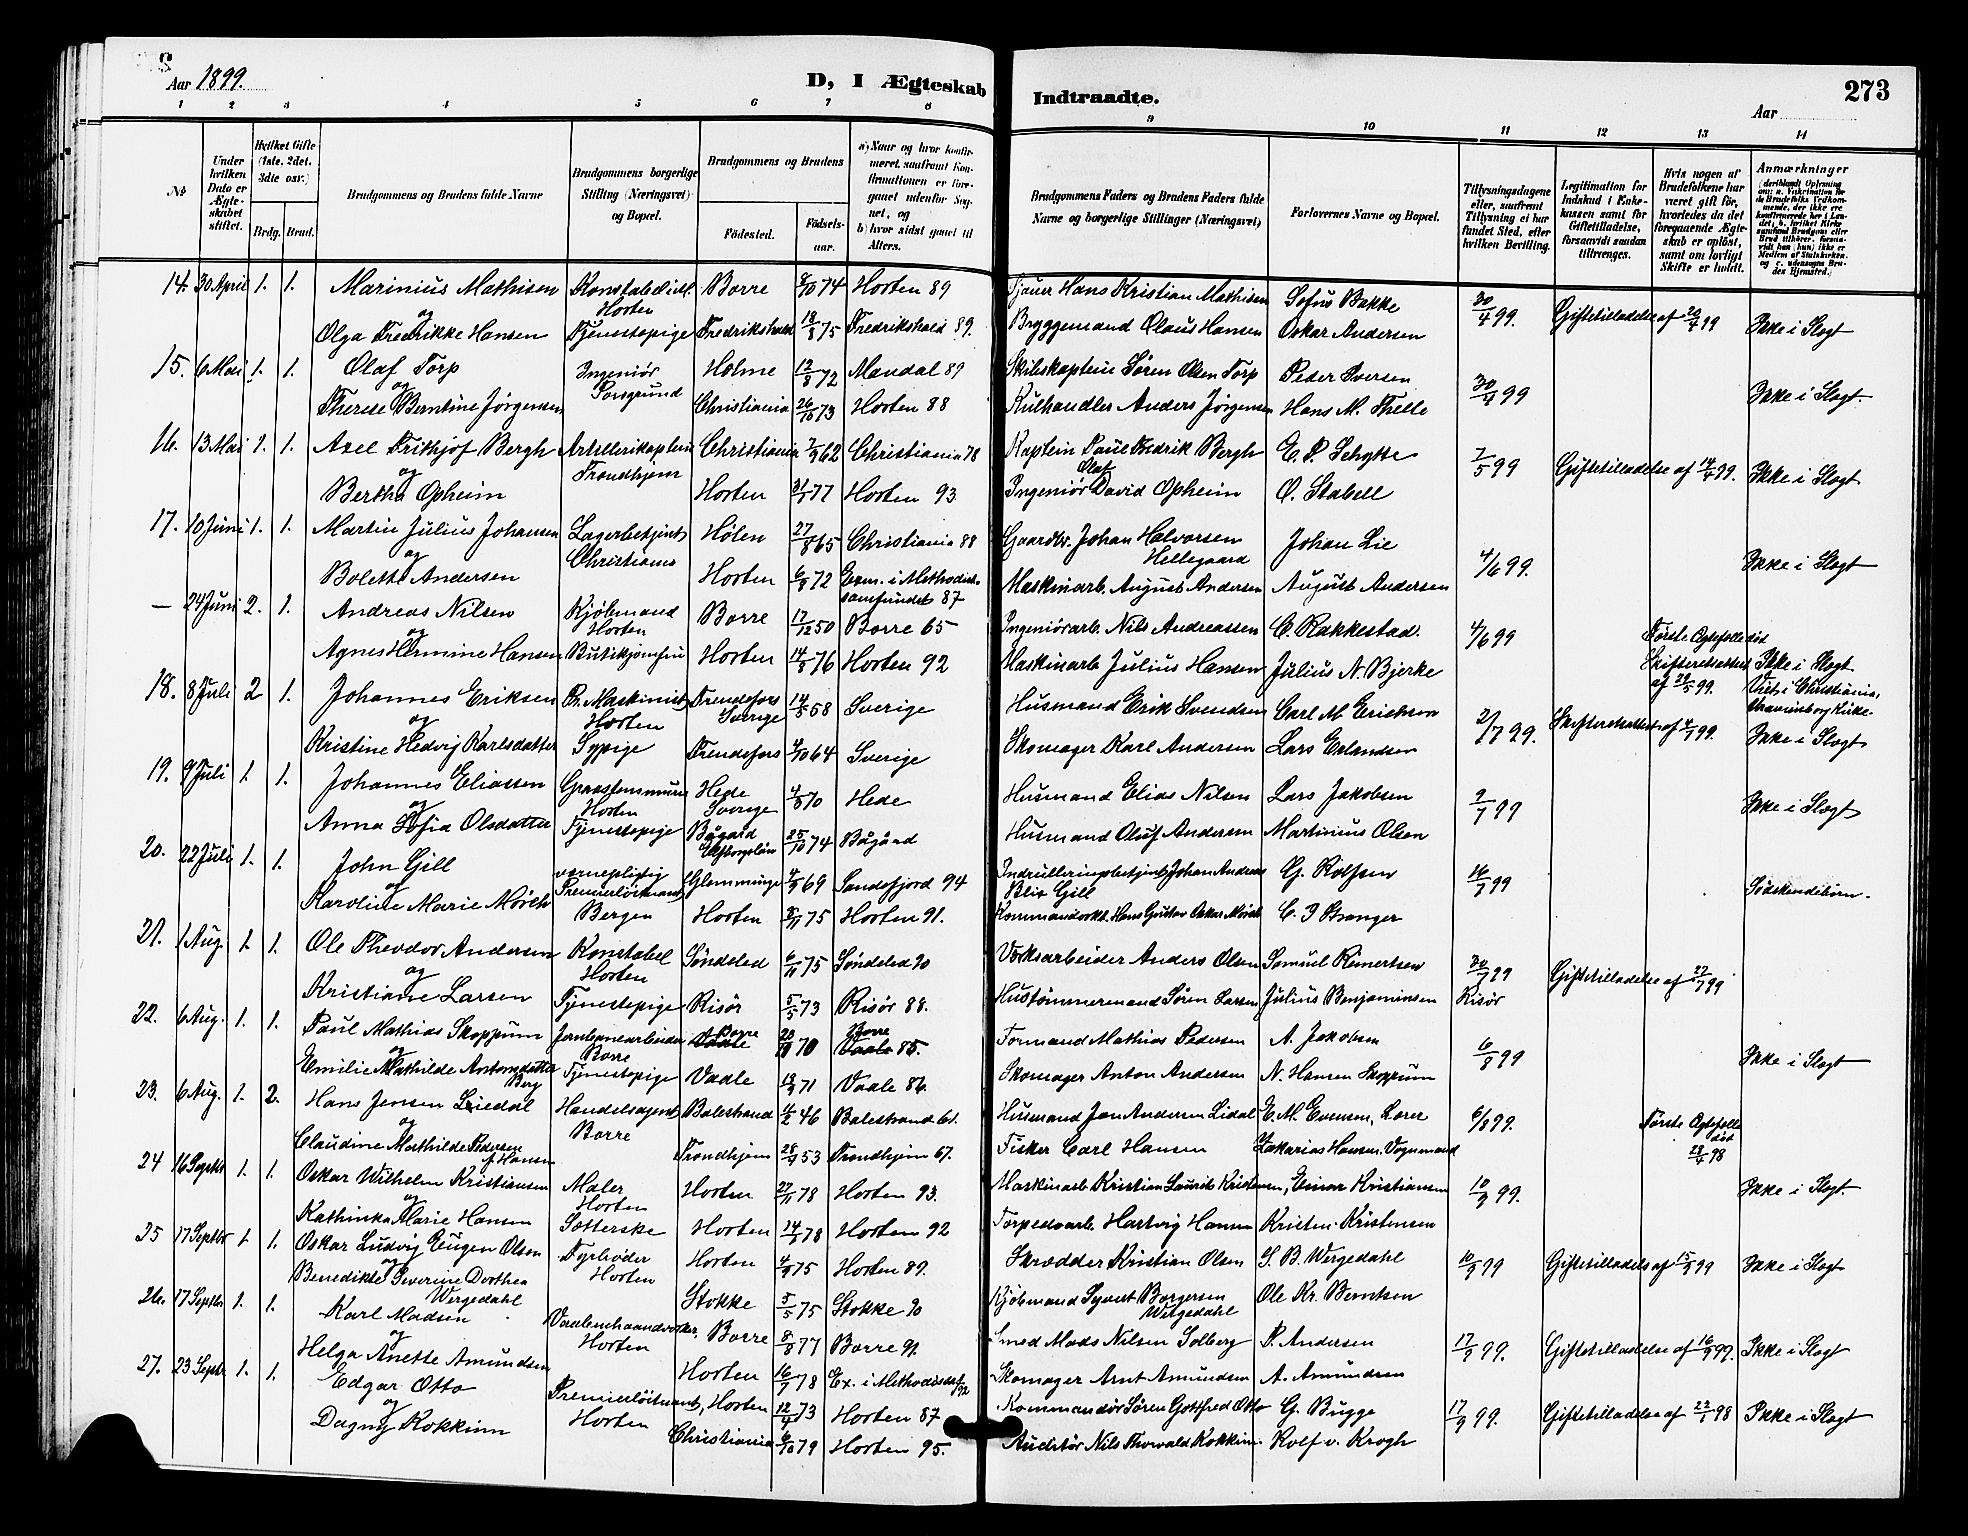 Aar 1899.
D, I Ægteskab Indtraadte.
273
Aar
1 2 3 4 5 6 7 8 9 10 11 12 13 14
No
Under hvilken Dato er Ægteskabet stiftet.
Hvilket Gifte (1ste, 2det, 3die osv.)
Brdg. Brud.
Brudgommens og Brudens fulde Navne
Brudgommens borgerlige Stilling (Næringsvei) og Bopæl.
Brudgommens og Brudens
Fødested.
Fødselsaar.
a) Naar og hvor konfirmeret, saafremt Konfirmationen er foregaaet udenfor Sognet, og
b) hvor sidst gaaet til Alters.
Brudgommens Faders og Brudens Faders fulde Navne og borgerlige Stillinger (Næringsvei)
Forlovernes Navne og Bopæl.
Tillysningsdagene eller, saafremt Tillysning ei har fundet Sted, efter hvilken Bevilling.
Legitimation for Indskud i Enkekassen samt for Giftetilladelse, forsaavidt saadan tiltrænges.
Hvis nogen af Brudefolkene har været gift før, hvorledes da det foregaaende Ægteskab er opløst, samt om lovligt Skifte er holdt.
Anmærkninger
14. 30 April 1. 1. Marinius Mathisen Borre 74 Horten 89 Hans Kristian Mathisen Sofus Bakke 30/4 99. Giftetilladelse af 20/4 99 Ikke i Slægt
og Horten
Olga Fredrikke Hansen Tjenestepige Fredrikshald 18/8 75 Fredrikshald 89. Bryggemand Olaus Hansen Oskar Andersen
15. 6 Mai 1. 1. Olaf Torp Ingeniør Holme 12/8 72 Mandal 89 Skibskaptein Søren Olsen Torp Peder Iversen 30/4 99 Ikke i Slægt.
og Porsgrund
Therese Berntine Jørgensen Christiania 26/10 73 Horten 88 Kulhandler Anders Jørgensen Hans M. Thelle
16. 13 Mai 1. 1. Axel Frithjof Bergh Artillerikaptein Christiania 7/9 62 Christiania 78 Kaptein Paul Fredrik Bergh E. P. Schytte 7/5 99 Giftetilladelse af 14/4 99. Ikke i Slægt
og Trondhjem
Bertha Opheim Horten 77 Horten 93 Ingeniør Olaf David Opheim O. Stabell
17. 10 Juni 1. 1. Martin Julius Johansen Lagerbetjent Hølen 27/8 65 Christiania 88 Gaardbr. Johan Halvorsen Hellegaard Johan Lie 4/6 99. Ikke i Slægt
og Christiania
Bolette Andersen Horten 72 Exm. i Methodistsamfundet 87 Maskinarb. August Andersen August Andersen
— 24 Juni 2. 1. Andreas Nilsen Kjøbmand Borre 17/12 50 Borre 65 Ingeniørarb. Nils Andreassen C. Rakkestad. 4/6 99 Første Ægtefælle død
og Horten
Agnes Hermine Hansen Butikjomfru Horten 14/8 76 Horten 92 Maskinarb Julius Hansen Julius N. Bjerke Skifteretsattest af 29/5 99. Ikke i Slægt Viet i Christiania,
18. 8 Juli 2 1. Johannes Eriksen Maskinist Sverige 14/5 58 Sverige Husmand Erik Svendsen Carl M Erickson 2/7 99. Skifteretsattest af 4/7 99. Ikke i Slægt
og Horten
Kristine Hedvig Karlsdatter Sypige 64 Sverige Skomager Karl Andersen Lars Erlandsen
19. 9 Juli 1. 1. Johannes Eliassen Hede Sverige 70 Hede Husmand Elias Nilsen Lars Jakobsen 2/7 99 Ikke i Slægt
og Horten
Anna Sofia Olsdatter Tjenestepige 25/10 74 Husmand Oluf Andersen Martinius Olsen
20. 22 Juli 1. 1. John Gill værnepligtig Premierløitnant 69 Sandefjord 94 Johan Andreas Blix Gill G. Rolfsen 16/7 99 Søskendebørn.
og Bergen
Karoline Marie Mörch Horten 75 Horten 91. Hans Gustav Oskar Mörch
21. 1 Aug. 1. 1. Ole Theodor Andersen Konstabel Søndeled 6/11 75 Søndeled 90 Anders Olsen Samuel Reinertsen 30/7 99 Giftetilladelse af 27/7 99
og Horten
Kristiane Larsen Tjenestepige Risør 5/5 73 Risør 88. Hustømmermand Søren Larsen Julius Benjaminsen Risør
22. 6 Aug. 1. 1. Paul Mathias Skoppum Jernbanearbeider Borre 70 Borre 85. Formand Mathias Pedersen A. Jakobsen 6/8 99 Ikke i Slægt
og Borre
Emilie Mathilde Antonsdatter Berg Tjenestepige Vaale 71 Vaale 86. Skomager Anton Andersen N. Hansen Skoppum
23. 6 Aug. 1. 2. Hans Jensen Handelsagent Balestrand 46 Balestrand 61. Husmand Jon Andersen Lidal E. M. Evensen, 6/8 99. Første Ægtefælle død 28/4 98
og Borre
Claudine Mathilde Pedersen f. Hansen Trondhjem 53 Trondhjem 67. Fisker Carl Hansen Zakarias Hansen, Vognmand
24 16 Septbr 1. 1. Oskar Wilhelm Kristiansen Maler Horten 27/11 78 Horten 93. Maskinarb Kristian Laurits Kristensen, Einar Kristiansen 10/9 99. Ikke i Slægt.
og Horten
Kathinka Marie Hansen Sætterske Horten 78 Horten 92 Torpedoarb. Hartvig Hansen Kristen Kristensen
25 17 Septbr 1. 1. Oskar Ludvig Eugen Olsen Fyrbøder Horten 75 Horten 89. Skrædder Kristian Olsen S. B. Wergedahl 10/9 99 Giftetilladelse af 15/9 99 Ikke i Slægt
og Horten
Benedikte Severine Dorthea Wergedahl Stokke 5/5 75 Stokke 90 Kjøbmand Syvert Borgersen Wergedahl Ole Kr. Berntsen
26. 17 Septbr. 1. 1. Karl Madsen Vaabenhaandverker, Borre 8/8 77 Borre 91 Smed Mads Nilsen Solberg P. Andersen 17/9 99. Giftetilladelse af 16/9 99. Ikke i Slægt
og Horten
Helga Anette Amundsen Horten 16/7 78 Ex. i Methodistsf 92 Skomager Arnt Amundsen A. Amundsen
27. 23 Septr. 1. 1. Edgar Otto Premierløitnant, Horten 12/4 73 Horten 87 Kommandør Søren Gottfred Otto G. Bugge 17/9 99. Giftetilladelse af 98 Ikke i Slægt
og Horten
Dagny Kokkinn Christiania 79 Horten 95. Auditør Nils Thorvald Kokkinn. Rolf v. Krogh